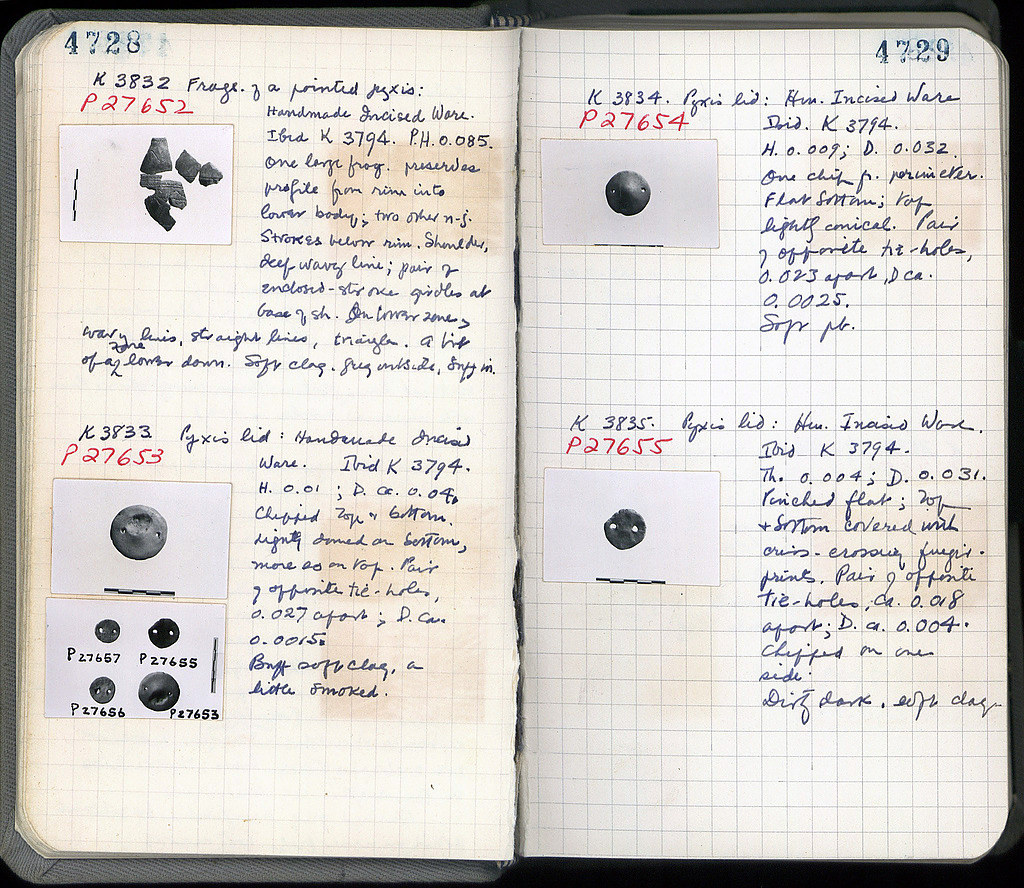 4728
K 3832 Frags. of a pointed pyxis:
P 27652
Handmade Incised Ware.
Ibid K 3794. P.H. 0.085.
One large frag. preserves
profile from rim into
lower body; two other n-j.
Strokes below rim. Shoulder,
deep wavy line; pair of
enclosed-stroke girdles at
base of sh. On lower zone,
wavy lines, straight lines, triangles. A bit
of a zone lower down. Soft clay. grey outside, buff in.
K 3833 Pyxis lid: Handmade Incised
P 27653
Ware. Ibid K 3794.
H. 0.01 ; D. ca. 0.04.
Chipped top & bottom.
Lightly domed on bottom,
more so on top. Pair
of opposite tie-holes,
0.027 apart ; D. ca.
0.0015.
Buff soft clay, a
little smoked.
P 27657 P 27655
P 27656 P 27653
4729
K 3834. Pyxis lid: Hm. Incised Ware
P 27654
Ibid. K 3794.
H. 0.009; D. 0.032.
One chip fr. perimeter.
Flat bottom; top
lightly conical. Pair
of opposite tie-holes,
0.023 apart, D ca.
0.0025.
Soft
K 3835. Pyxis lid: Hm. Incised Ware.
P 27655
Ibid K 3794.
Th. 0.004; D. 0.031.
Pinched flat; top
+ bottom covered with
criss-crossing finger-
prints. Pair of opposite
tie-holes, ca. 0.018
apart; D. ca. 0.004.
Chipped on one
side.
Dirty dark, soft clay